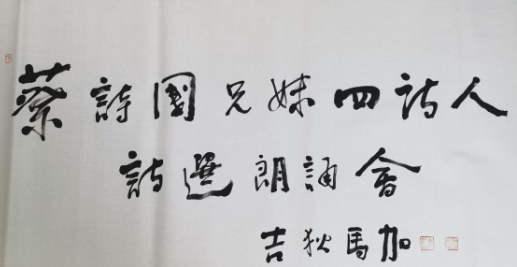 蔡詩園兄妹四詩人
詩選朗誦會
吉狄馬加